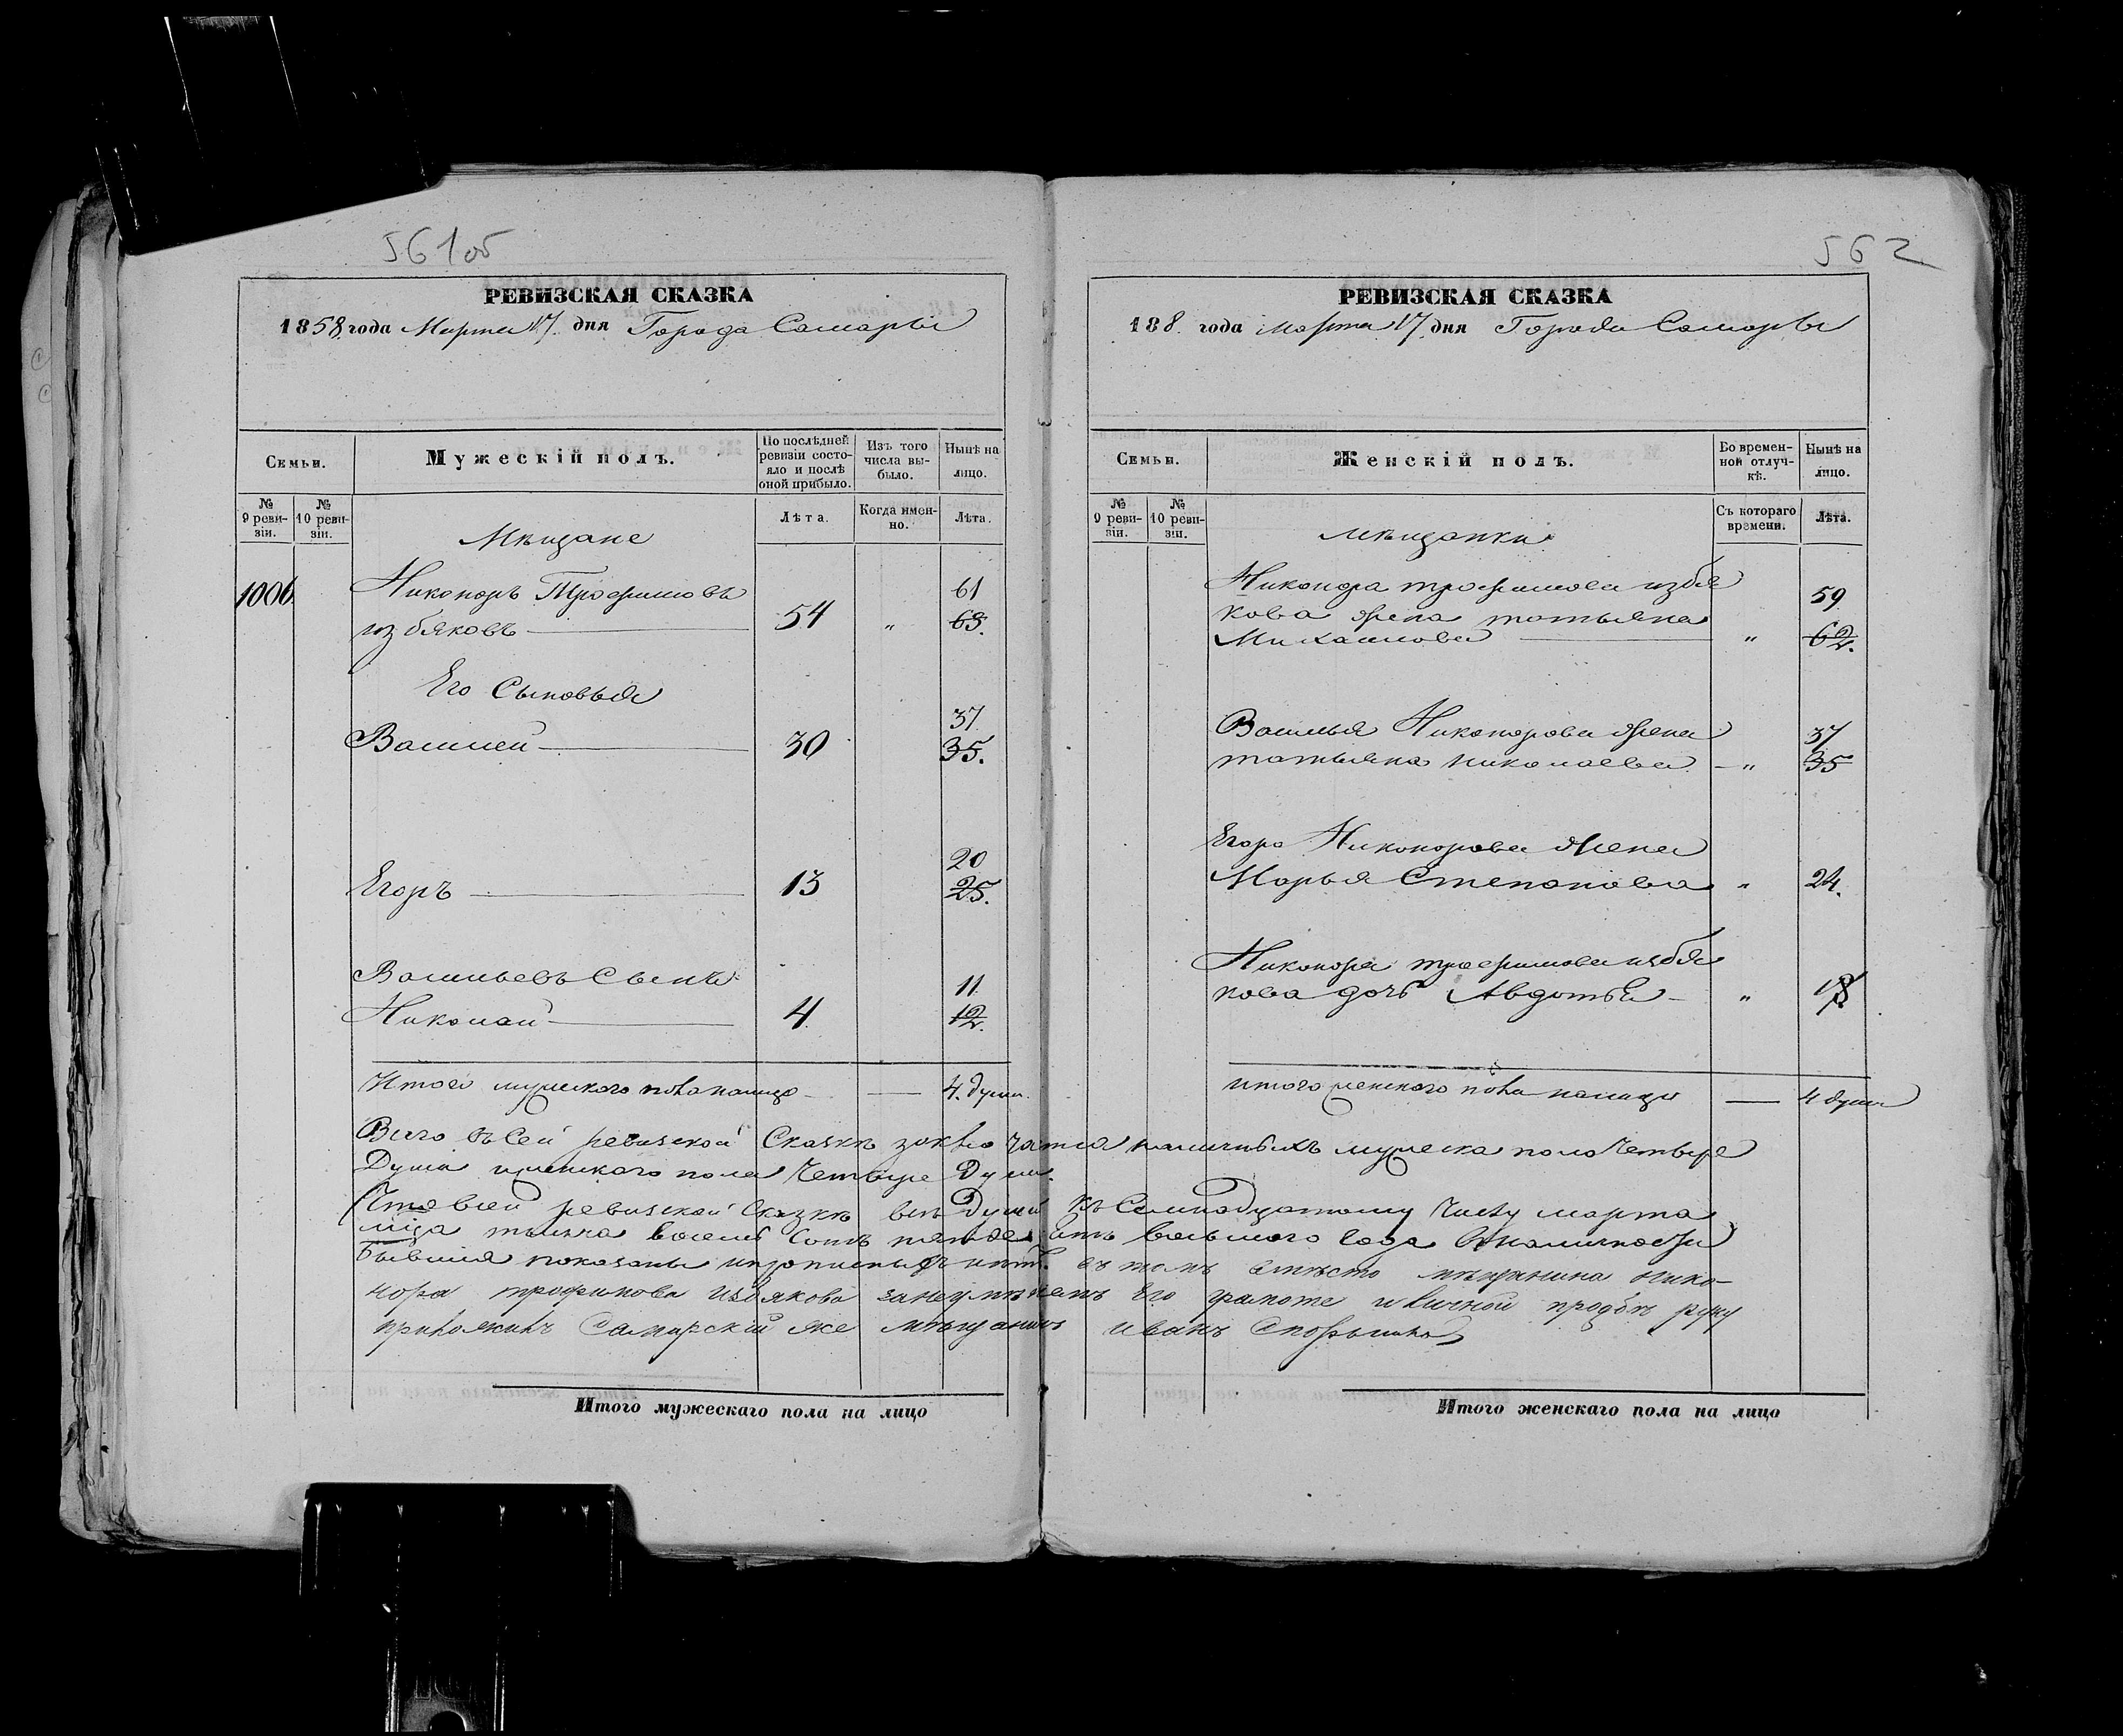 561об
РЕВИЗСКАЯ СКАЗКА
1858 года Марта 17 дня Города Самары
Семьи.
Мужескій полъ.
По послѣдней ревизіи состояло и послѣ оной прибыло.
Изъ того числа выбыло.
Нынѣ на лицо.
№ 9 ревизіи.
№ 10 ревизіи.
Лѣта.
Когда именно.
Лѣта.
Мѣщане
1006 Никоноръ Трофимовъ 61
избяковъ 54 " 63.
Его Сыновья
37
Василей 30 35.
20
Егоръ 13 25.
Васильевъ Сынъ 11
Николай 4 12.
Итого мужескаго пола налицо 4. души
562
РЕВИЗСКАЯ СКАЗКА
188 года Марта 17 дня Города Самары
Семьи.
Женскій полъ.
Во временной отлучкѣ.
Нынѣ на лицо.
№ 9 ревизіи.
№ 10 ревизіи.
Съ котораго времени.
Лѣта.
мѣщанки
Никонора трофимова избя 59
кова жена татьяна
Михайлова " 62.
Василья Никонорова жена 37
татьяна николаева " 35
Егора Никонорова жена
Марья Степанова " 24.
Никонора трофимова избя
кова дочь Авдотья "
итого женскаго пола налицо 4 души
Всего въ Сей ревизской Сказкѣ заключается наличныхъ мужеска пола Четыре
Души и женскаго пола Четыре Души.
Что в сей ревизской Сказкѣ всѣ Души къ Семнадцатому Числу марта
мца тысяча восемь Сотъ пятьдесятъ восьмого года в наличности
бывшия показаны и прописныхъ нѣтъ. въ томъ вмѣсто мѣщанина нико-
нора трофимова избякова за неумѣнiемъ Его грамоте и личной прозбѣ руку
приложилъ Самарскiй же мѣщанинъ иванъ
Итого мужескаго пола на лицо
Итого женскаго пола на лицо